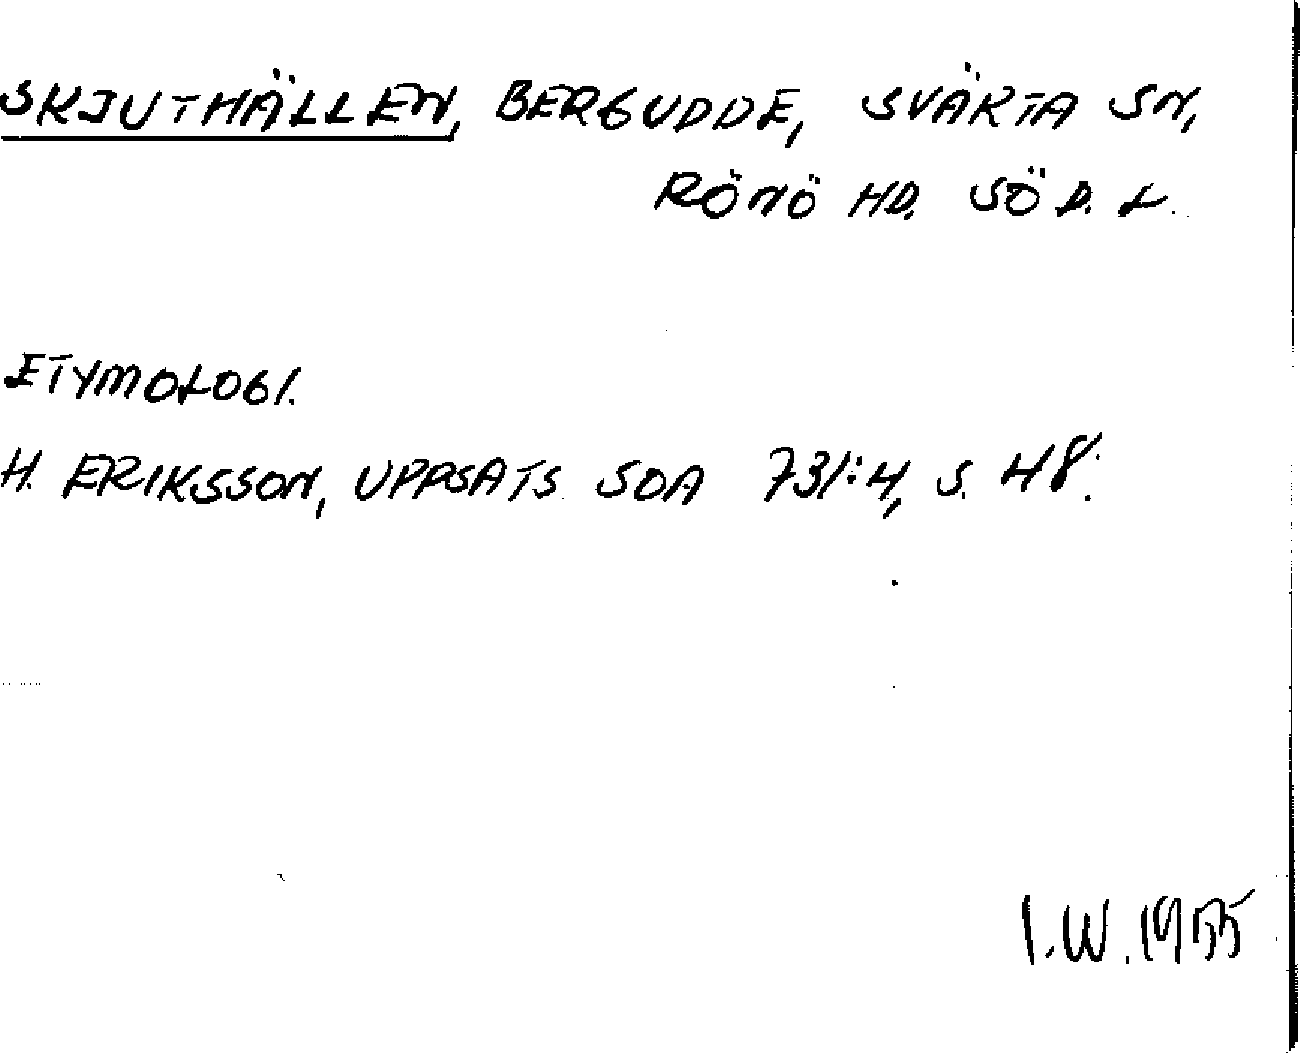 SKJUTHÄLLEN, BERGUDDE, SVÄRTA SN,
RÖNÖ HD. SÖD. L.
ETYMOLOGI.
H. ERIKSSON, UPPSATS SOA 731:4, S. 48.
I.W. 1955